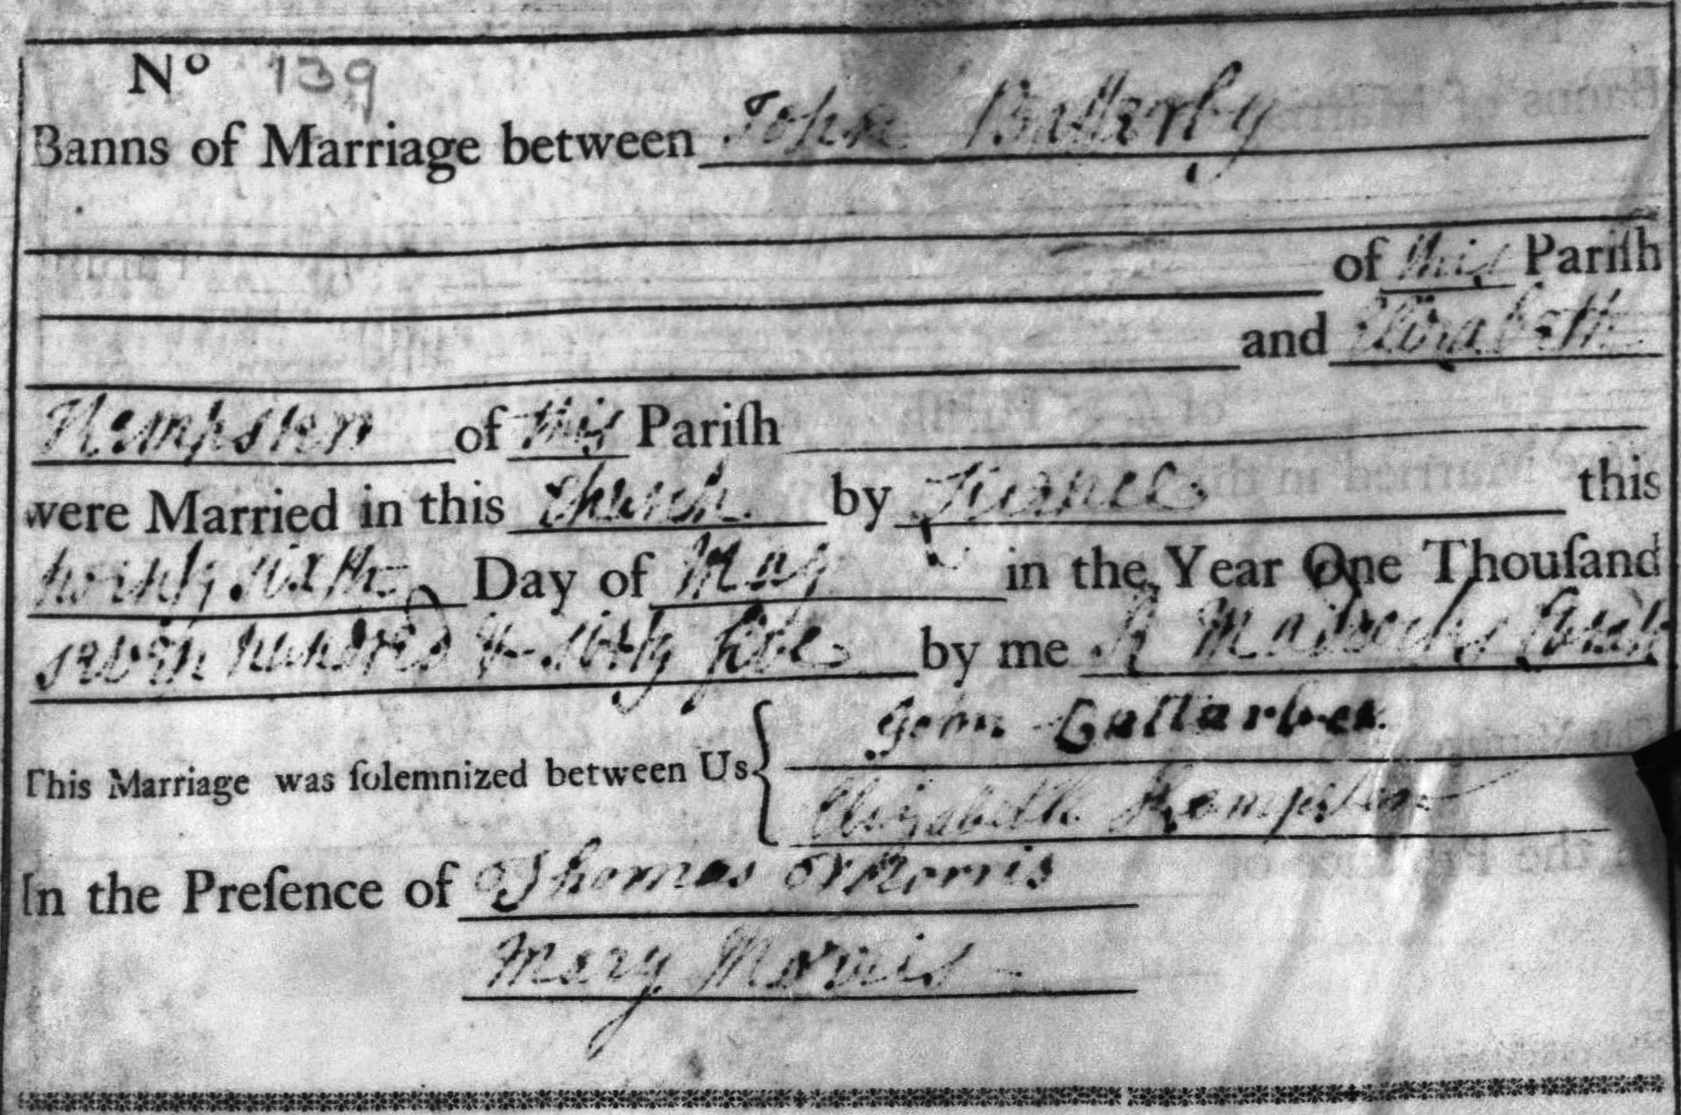 No 139
Banns of Marriage between John Butterby
of this Pariſh
and Elizabeth
Hempsten of this Pariſh
were Married in this Church by Licence this
twenty sixth Day of May in the Year One Thouſand
seven hundred & sixty five by me R Maddocks
This Marriage was ſolemnized between Us John
Elizabeth Hempsten
In the Preſence of Thomas Morris
Mary Morris